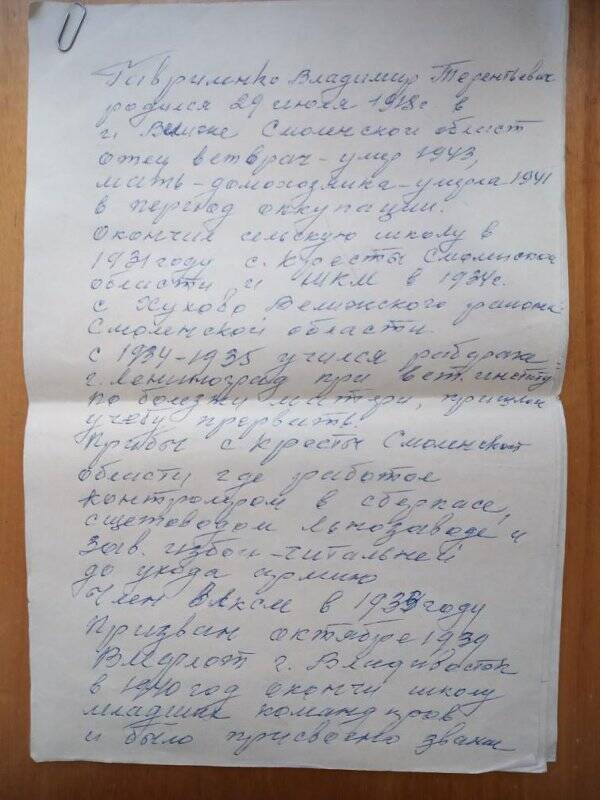 Гавриленко Владимир Терентьевич
родился 29 июля 1918г в
г. Велиже Смоленской област
отец ветврач - умер 1943,
мать - домохозяйка - умерла 1941
в период оккупации.
Окончил сельскую школу в
1931 году с. Кресты Смоленской
области и ШКМ в 1934г.
с Хухово Велижского района
Смоленской области.
с 1934-1935 учился рабфаке
г. Ленинград при вет. институ
по болезни матери, пришлось
учёбу прервать.
Прибыл с Кресты Смоленской
области где работал
контролером в сберкасе,
счетоводом льнозаводе и
зав. избой-читальней
до ухода армию
Член ВЛКСМ в 1935 году
Призван октябре 1939
г. Владивосток
в 1940 год окончи школу
младших командиров
и было присвоено звани